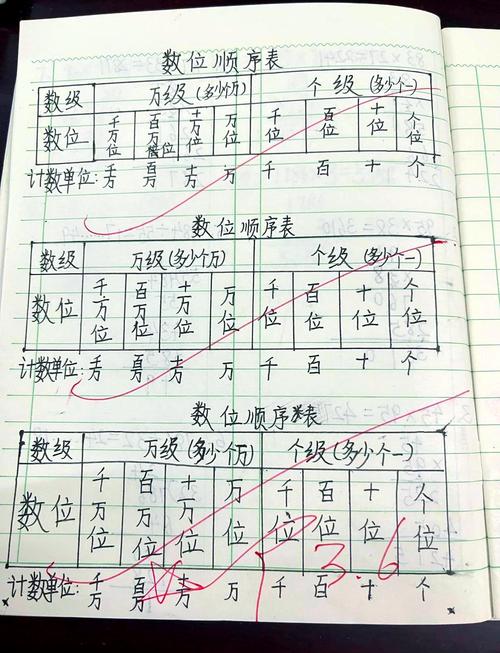 数位顺序表
数级 万级(多少个万) 个级(多少个一)
数位 千万位 百万位 十万位 万位 千位 百位 十位 个位
计数单位: 千万 百万 十万 万 千 百 十 个
数位顺序表
数级 万级(多少个万) 个级(多少个一)
数位 千万位 百万位 十万位 万位 千位 百位 十位 个位
计数单位: 千万 百万 十万 万 千 百 十 个
数位顺序表
数级 万级(多少个万) 个级(多少个一)
数位 千万位 百万位 十万位 万位 千位 百位 十位 个位
3.6
计数单位: 千万 百万 十万 万 千 百 十 个